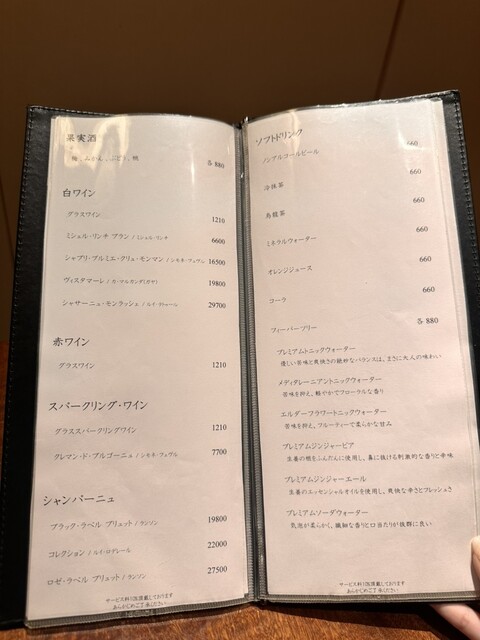 果実酒
梅、みかん、ぶどう、桃 各 880
白ワイン
グラスワイン 1210
ミシェル・リンチ ブラン / ミシェル・リンチ 6600
シャブリ・プルミエ・クリュ・モンマン / シモネ・フェヴル 16500
ヴィスタマーレ / カ・マルカンダ(ガヤ) 19800
シャサーニュ・モンラッシェ / ルイ・ジャド 29700
赤ワイン
グラスワイン 1210
スパークリング・ワイン
グラススパークリングワイン 1210
クレマン・ド・ブルゴーニュ / シモネ・フェヴル 7700
シャンパーニュ
ブラック・ラベル ブリュット / ランソン 19800
コレクション / ルイ・ロデレール 22000
ロゼ・ラベル ブリュット / ランソン 27500
サービス料15%頂戴しております
あらかじめご了承ください
ソフトドリンク
ノンアルコールビール 660
冷抹茶 660
烏龍茶 660
ミネラルウォーター 660
オレンジジュース 660
コーラ 660
フィーバーツリー 各 880
プレミアムトニックウォーター
優しい苦味と爽快さの絶妙なバランスは、まさに大人の味わい
メディタレーニアントニックウォーター
苦味を抑え、軽やかでフローラルな香り
エルダーフラワートニックウォーター
苦味を抑え、フルーティーで柔らかな甘み
プレミアムジンジャービア
生姜の根をふんだんに使用し、鼻に抜ける刺激的な香りと辛味
プレミアムジンジャーエール
生姜のエッセンシャルオイルを使用し、爽快な辛さとフレッシュさ
プレミアムソーダウォーター
気泡が柔らかく、繊細な香りと口当たりが抜群に良い
サービス料15%頂戴しております
あらかじめご了承ください